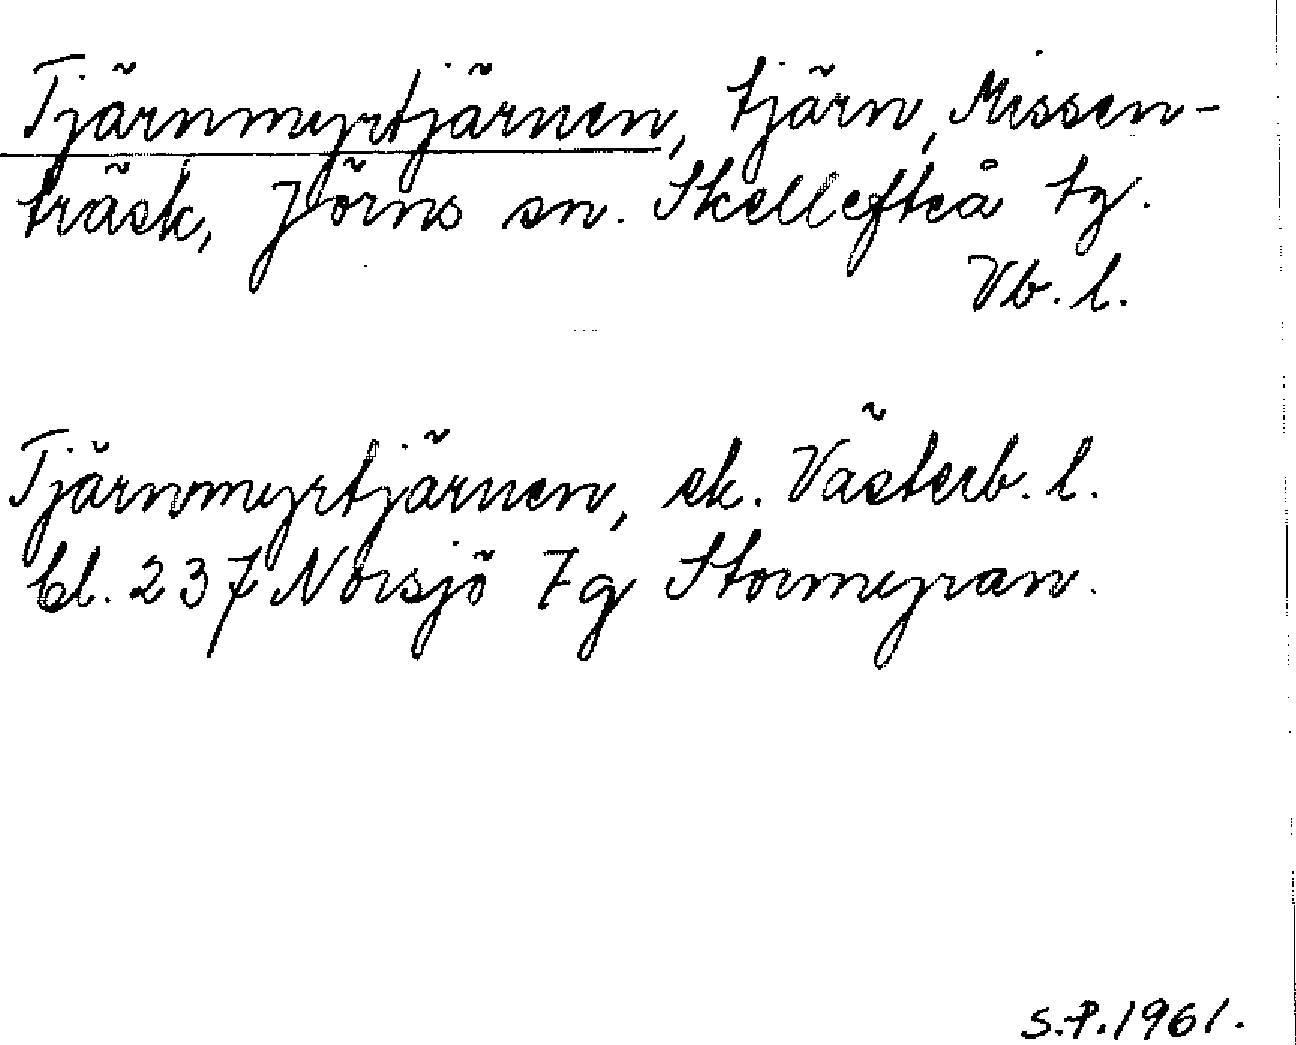 Tjärnmyrtjärnen, tjärn, Missen-
träsk, Jörns sn. Skellefteå tg.
Vb. l.
Tjärnmyrtjärnen, ek. Västerb. l.
bl. 237 Norsjö 7g Stormyran.
S.P. 1961.